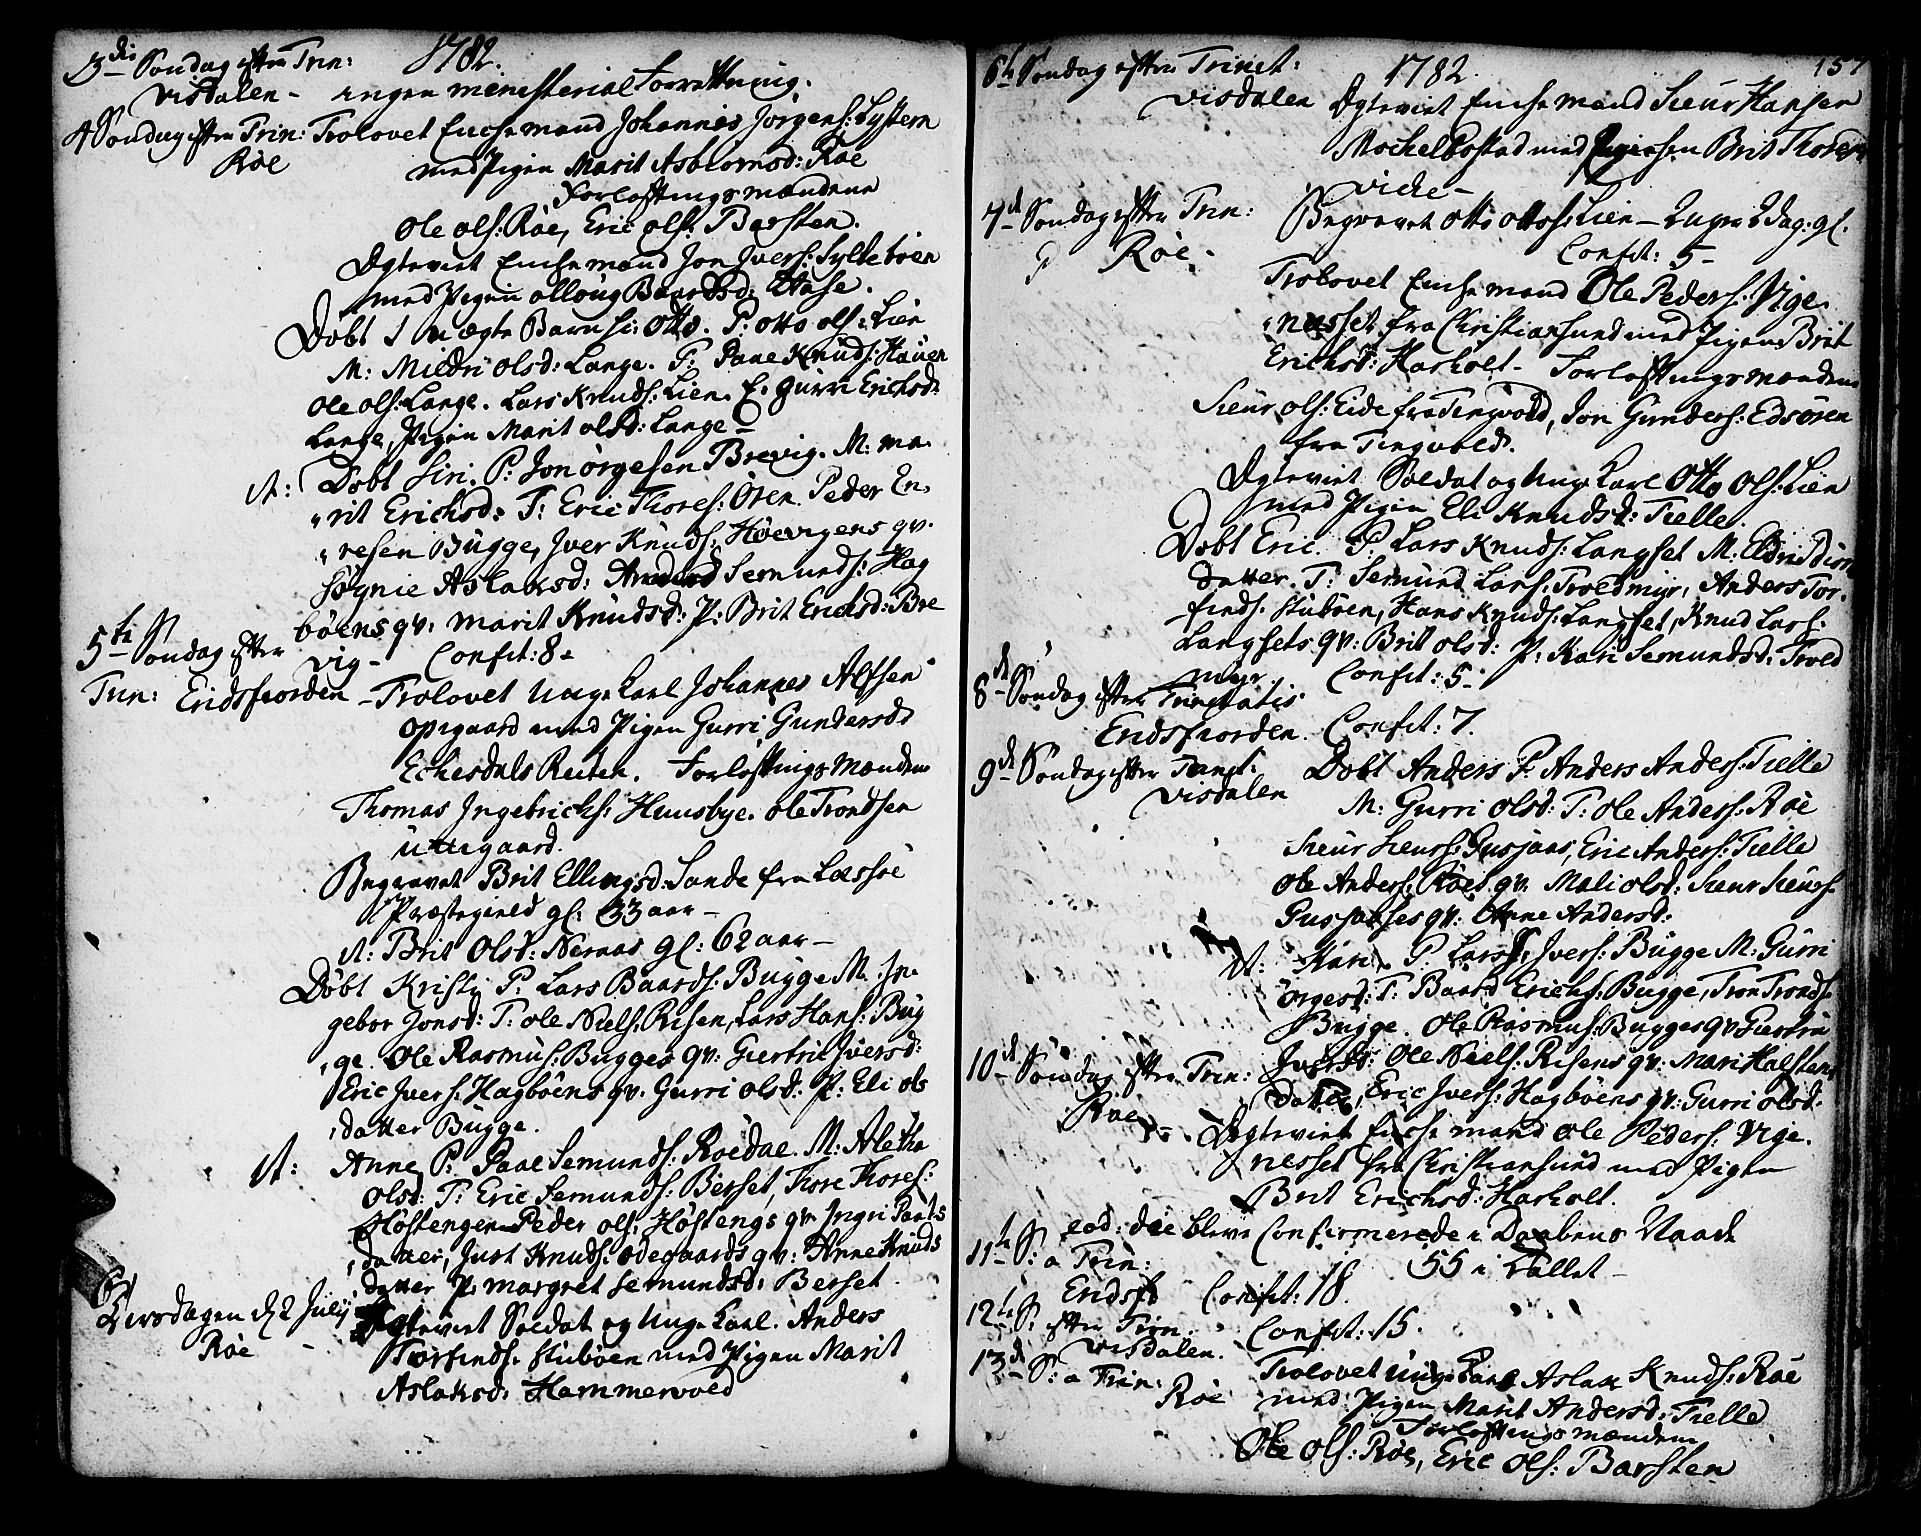 3die Søndag efter Trin: 1782.
Visdalen - ingen ministerial Forrettning.
4 Søndag efter Trin: Trolovet Enchemand Johannes Jørgens: System
Røe med Pigen Marit Asbiornsd: Røe
Forlovtningsmændene
Ole Ols: Røe, Eric Ols: Barsten.
Ægteviet Enchemand Jon Ivers: Syltebøen
med Pigen Olloug Baardsd: Hase.
Døbt 1 uægte Barn Hi: Otto. P: Otto Ols: Lien
M: Mildri Olsd: Lange. F: Paul Knuds: Hauen
Ole Ols: Lange. Lars Knuds: Lien. E. Gurri Erichsd:
Lange, Pigen Marit Olsd: Lange -
It: Døbt Siri. P: Jon Ørgesen Brevig. M: Ma-
rit Erichsd: F: Eric Thores: Øren Peder En-
resen Bugge, Iver Knuds: Høevigens qv.
Signie Aslaksd: Anders Semunds: Hag
bøens qv: Marit Knudsd: P: Brit Erichsd: Bre
vig - Confit: 8 -
5te Søndag efter
Trin: Eridsfiorden - Trolovet Unge Karl Johannes Alfsen
Opigaard med Pigen Gurri Gundersd
Echesdals Reiten. Forlovtningsmændene
Thomas Ingebrichs: Huusbye. Ole Trondsen
Utigaard.
Begravet Brit Ellingsd: Sande fra Lessøe
Præstegield gl: 33 aar -
It: Brit Olsd: Nernas gl: 62 aar -
Døbt Kristi P: Lars Baards: Bugge M: In-
gebor Jonsd: F: Ole Niels: Risen, Lars Hans: Bug
ge. Ole Rasmus: Bugges qv: Giertrue Iversd:
Eric Ivers: Hagbøens qv. Gurri Olsd: P: Eli Ols
datter Bugge.
It: Anne P: Paul Semunds: Roedal. M: Aletha
Olsd: F: Eric Semunds: Berset, Thore Thores:
Høstengen Peder Ols: Høstengs qv Ingri Pauls
datter, Just Knuds: Ødegaards qv: Anne Knuds
datter P: Margret Semundsd: Berset.
Tirsdagen d: 2 July Ægteviet Soldat og Unge Karl. Anders
Røe - Torfinds: Stubøen med Pigen Marit
Aslaksd: Hammervold
157
6te Søndag efter Trinit: 1782.
Visdalen Ægteviet Enchemand Siur Hansen
Mochelbostad med Pigen Brit Thoresd
Viche -
7de Søndag efter Trin: Begravet Otto Ottos: Lien - 2 uger 2 dag: gl.
Røe. Confit: 5 -
Trolovet Enchemand Ole Peders: Vige-
nesset fra Christiansund med Pigen Brit
Erichsd: Harholt - Forlovtningsmændene
Siur Ols: Eide fra Tingvold, Jon Gunders: Edsøren
fra Tingvold.
Ægteviet Soldat og Unge Karl Otto Ols: Lien
med Pigen Eli Knudsd: Tielle.
Døbt Eric. P: Lars Knuds: Langset M: Eldri
datter. F: Semund Lars: Troldmyr, Anders Tor-
finds: Stubøen, Hans Knuds: Langset, Knud Lars:
Langsets qv: Brit Olsd: P: Kari Semundsd: Trold
myr. Confit: 5 -
8de Søndag efter Trinitatis
Eridsfiorden. Confit: 7.
9de Søndag efter Trinit: Døbt Anders P: Anders Anders: Tielle
Visdalen M: Gurri Olsd: F: Ole Anders: Røe
Siur Siurs: Gusjaas, Eric Anders: Tielle
Ole Anders: Røes qv. Mali Olsd: Siur Siurs:
Gusjaases qv: Anne Andersd:
It: Kari. P: Lars Ivers: Bugge M: Gurri
Ørgesd: F: Baard Erichs: Bugge, Tron Tronds:
Bugge. Ole Rasmus: Bugges qv Giertrue
Iversd: Ole Niels: Risens qv: Mari Halstens
datter, Eric Ivers: Hagbøens qv: Gurri Olsd:
10de Søndag efter Trin:
Røe - Ægteviet Enchemand Ole Peders: Vige-
nesset fra Christiansund med Pigen
Brit Erichsd: Harholt.
eod: die bleve Confirmerede i Daabens Naade
55 i Tallet -
11te S: a Trin:
Eridsfd Confit: 18.
12te S. efter Trin. Confit: 15.
Visdalen.
13de S: a Trin: Trolovet Unge Karl Aslak Knuds: Røe
Røe med Pigen Marit Andersd: Tielle
Forlovtningsmændene
Ole Ols: Røe, Eric Ols: Barsten